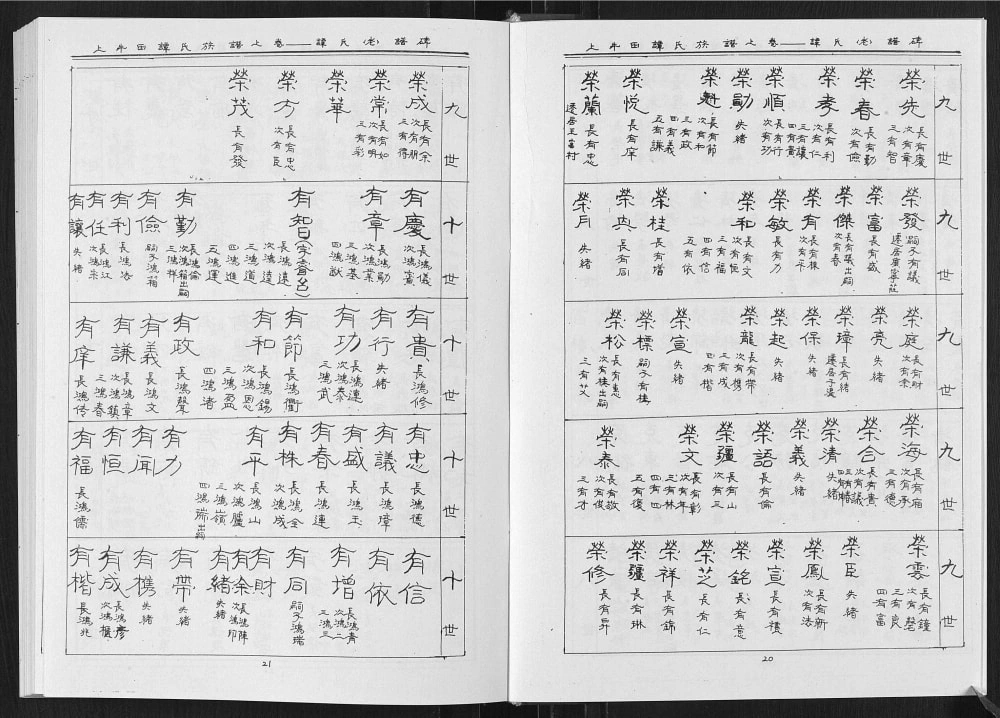 上牛田譚氏族譜上卷——譚氏(老)譜碑
九世
榮先 長有慶 次有章 三有智
榮春 長有勤 次有儉
榮孝 長有利 次有仁 三有讓 四有貴
榮順 長有行 次有功
榮勛 失緒
榮魁 長有節 次有和 三有政 四有義 五有謙
榮悅 長有庠
榮蘭 長有忠
九世
榮發 嗣子有議
榮富 長有盛
榮傑 長有議出嗣 次有春
榮有 長有株 次有平
榮敏 長有力
榮和 長有文 次有恒 三有福 四有信 五有依
榮桂 長有增
榮典 長有同
榮月 失緒
九世
榮庭 長有財 次有余
榮亮 失緒
榮璋 長有緒
榮保 失緒
榮起 失緒
榮龍 長有帶 次有携 三有成 四有楷
榮宣 失緒
榮標 嗣子有桂
榮松 長有惠 次有桂出嗣 三有艾
九世
榮海 長有廂 次有予 三有德
榮合 長有貴 次有議
榮清 失緒
榮義 失緒
榮語 長有倫
榮疆 長有山 次有三
榮文 長有彰 次有年 三有林 四有四 五有復
榮泰 長有敬 次有俊 三有才
九世
榮雲 長有鐘 次有磬 三有良 四有富
榮臣 失緒
榮鳳 長有新 次有浩
榮宣 長有積
榮銘 長有意
榮芝 長有仁
榮祥 長有錦
榮疆 長有琳
榮修 長有昇
20
上牛田譚氏族譜上卷——譚氏(老)譜碑
九世
榮成 長有余 次有朋 三有得
榮常 長有如 次有明 三有彩
榮華
榮方 長有忠 次有臣
榮茂 長有發
十世
有慶 長鴻儀 次鴻賓
有章 長鴻勛 次鴻業 三鴻基 四鴻猷
有智 長鴻遠 次鴻逵 三鴻道 四鴻進 五鴻運
有勤 長鴻倫 次鴻箱出嗣 三鴻祥
有儉 嗣子鴻箱
有利 長鴻浩
有任 長鴻江 次鴻宗
有讓 失緒
十世
有貴 長鴻修
有行 失緒
有功 長鴻連 次鴻泰 三鴻武
有節 長鴻衢
有和 長鴻錫 次鴻恩 三鴻盈 四鴻渚
有政 長鴻聲
有義 長鴻文
有謙 長鴻章 次鴻鎮 三鴻春
有庠 長鴻傳
十世
有忠 長鴻德
有議 長鴻璋
有盛 長鴻玉
有春 長鴻連
有株 長鴻全 次鴻成
有平 長鴻山 次鴻臚 三鴻嶺 四鴻瑞出嗣
有力
有聞
有恒
有福 長鴻儒
十世
有信
有依
有增 長鴻青 次鴻二 三鴻三
有同 嗣子鴻瑞
有財
有余 長鴻陣 次鴻印
有緒 失緒
有帶 失緒
有携 失緒
有成 長鴻彥 次鴻樞
有楷 長鴻兆
21